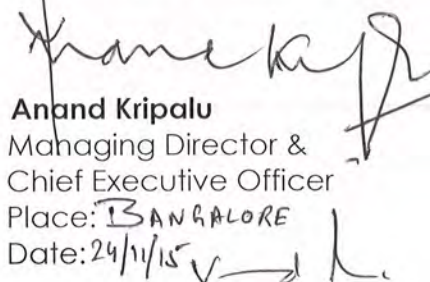 Anand Kripalu
Managing Director &
Chief Executive Officer
Place: BANGALORE
Date: 24/11/15